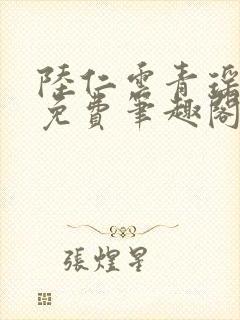 陸仁雲青瑶
免費筆趣閣
張煌星